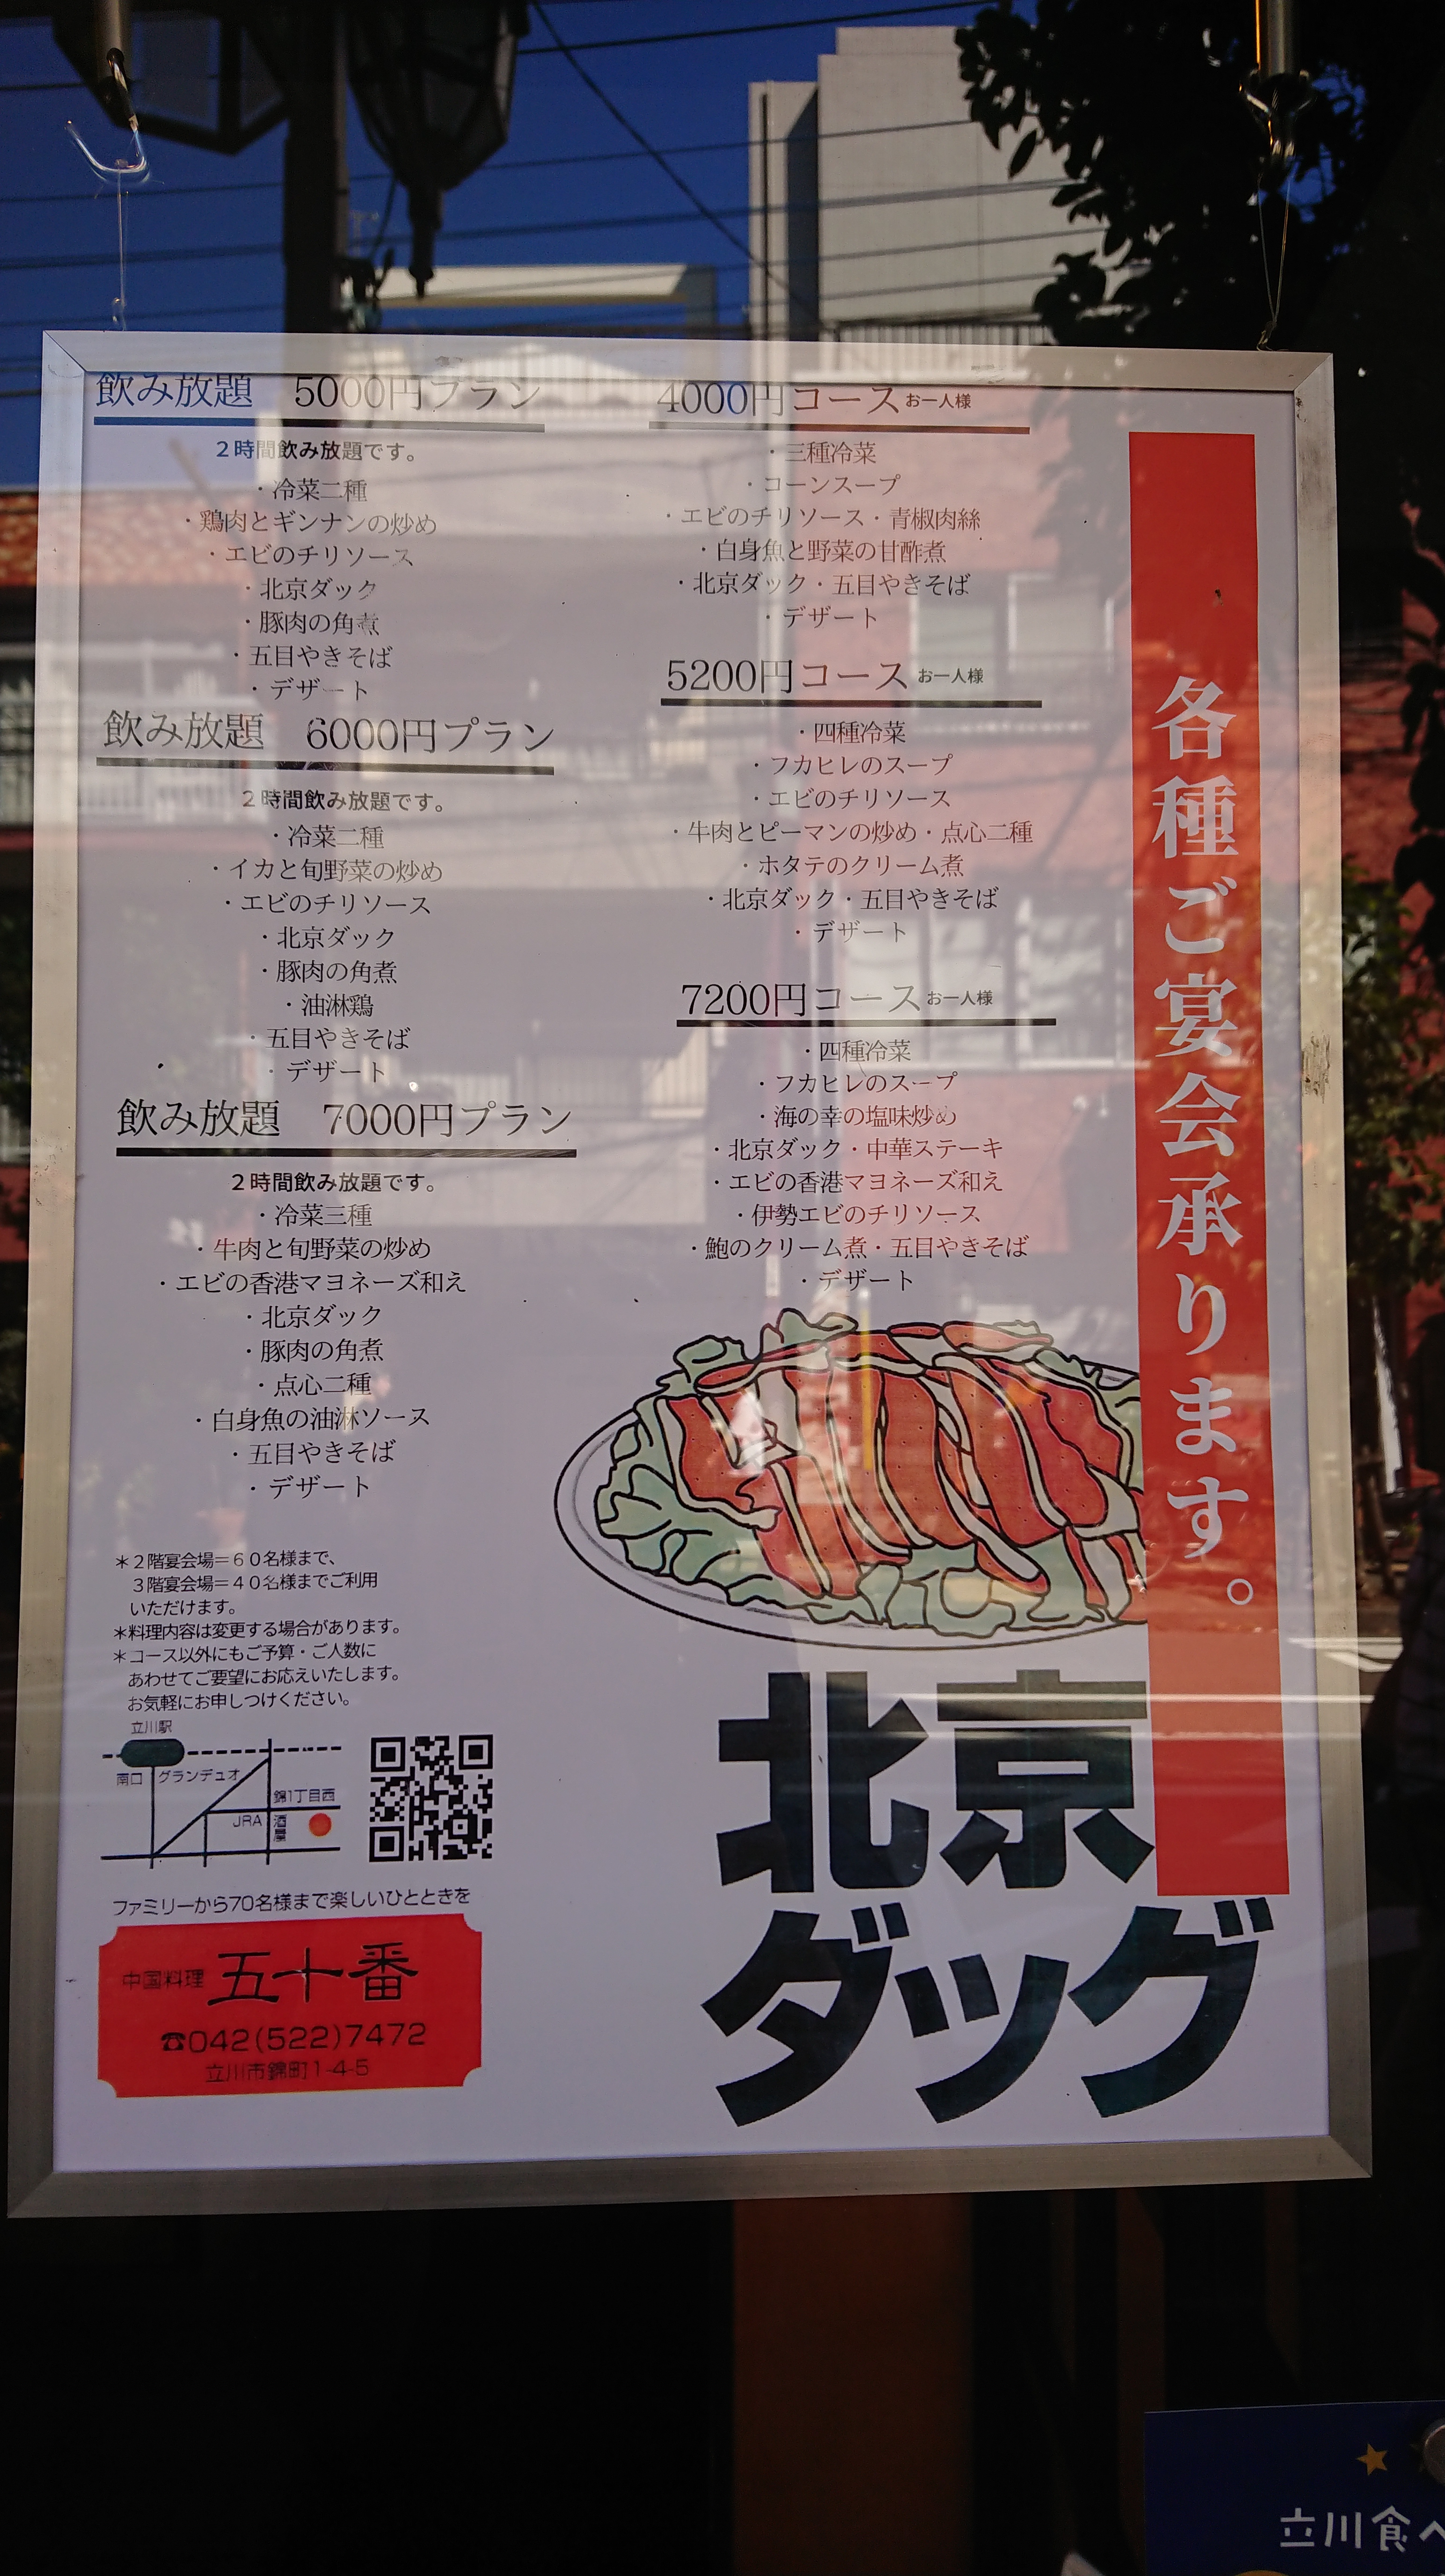 飲み放題　5000円プラン
２時間飲み放題です。
・冷菜二種
・鶏肉とギンナンの炒め
・エビのチリソース
・北京ダック
・豚肉の角煮
・五目やきそば
・デザート
飲み放題　6000円プラン
２時間飲み放題です。
・冷菜二種
・イカと旬野菜の炒め
・エビのチリソース
・北京ダック
・豚肉の角煮
・油淋鶏
・五目やきそば
・デザート
飲み放題　7000円プラン
２時間飲み放題です。
・冷菜三種
・牛肉と旬野菜の炒め
・エビの香港マヨネーズ和え
・北京ダック
・豚肉の角煮
・点心二種
・白身魚の油淋ソース
・五目やきそば
・デザート
4000円コースお一人様
・三種冷菜
・コーンスープ
・エビのチリソース・青椒肉絲
・白身魚と野菜の甘酢煮
・北京ダック・五目やきそば
・デザート
5200円コース お一人様
・四種冷菜
・フカヒレのスープ
・エビのチリソース
・牛肉とピーマンの炒め・点心二種
・ホタテのクリーム煮
・北京ダック・五目やきそば
・デザート
7200円コースお一人様
・四種冷菜
・フカヒレのスープ
・海の幸の塩味炒め
・北京ダック・中華ステーキ
・エビの香港マヨネーズ和え
・伊勢エビのチリソース
・鮑のクリーム煮・五目やきそば
・デザート
各種ご宴会承ります。
＊２階宴会場＝６０名様まで、
３階宴会場＝４０名様までご利用
いただけます。
＊料理内容は変更する場合があります。
＊コース以外にもご予算・ご人数に
あわせてご要望にお応えいたします。
お気軽にお申しつけください。
立川駅
南口
グランデュオ
錦1丁目西
JRA
酒屋
ファミリーから70名様まで楽しいひとときを
中国料理 五十番
☎042(522)7472
立川市錦町1-4-5
北京
ダッグ
立川食べ